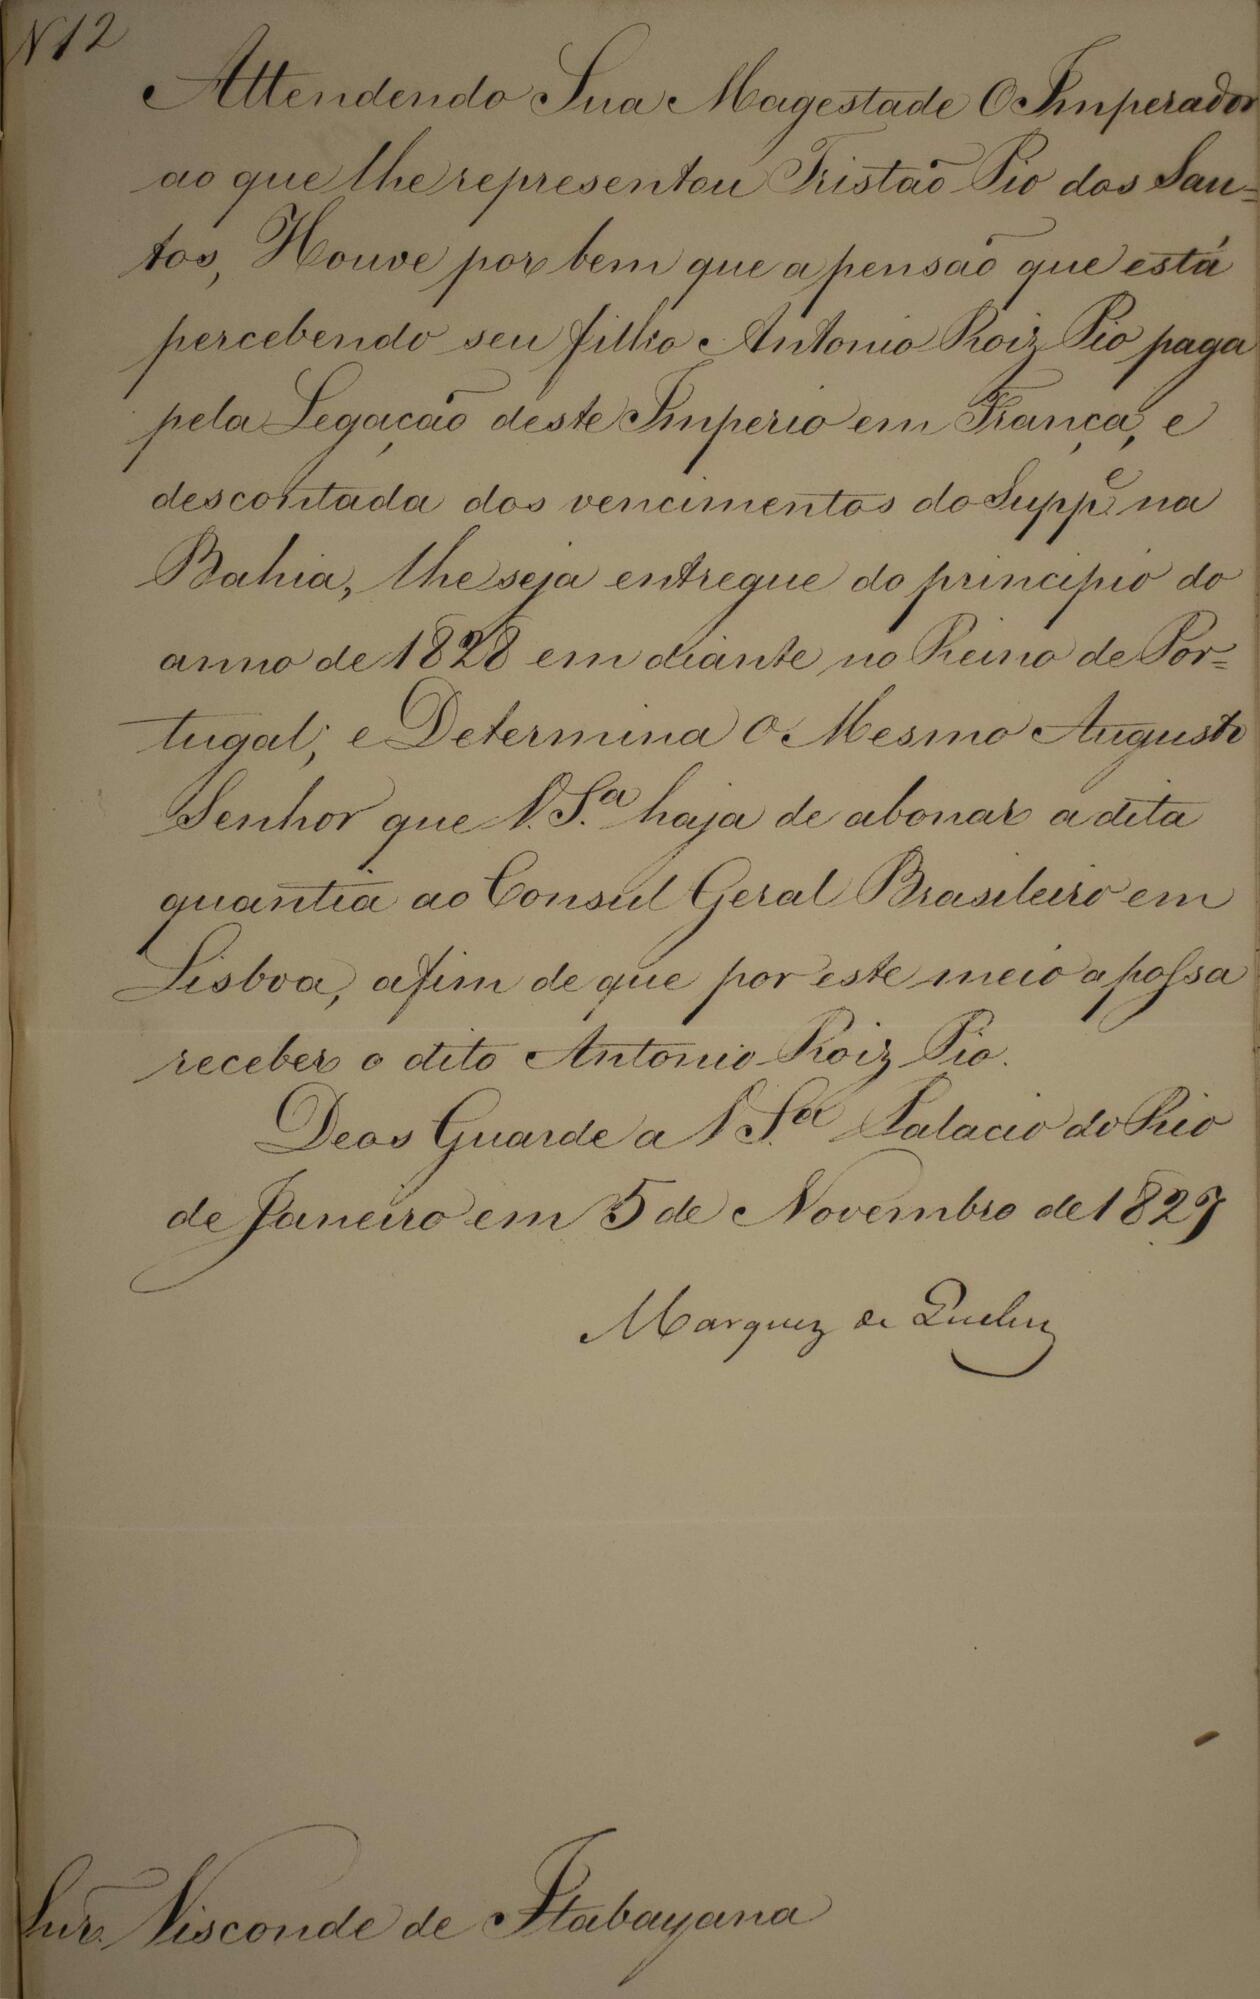 N 12
Attendendo Sua Magestade O Imperador
ao que lhe representou Tristão Pio dos San=
tos, Houve por bem que a pensão que está
percebendo seu filho Antonio Roiz Pio paga
pela Legação deste Imperio em França, e
descontada dos vencimentos do Suppe na
Bahia, lhe seja entregue do principio do
anno de 1828 em diante no Reino de Por=
tugal; e Determina O Mesmo Augusto
Senhor que V. S.a haja de abonar a dita
quantia ao Consul Geral Brasileiro em
Lisboa, afim de que por este meio a possa
receber o dito Antonio Roiz Pio.
Deos Guarde a V. S.a Palacio do Rio
de Janeiro em 5 de Novembro de 1827
Marquez de Queluz
Snr. Visconde de Itabayana